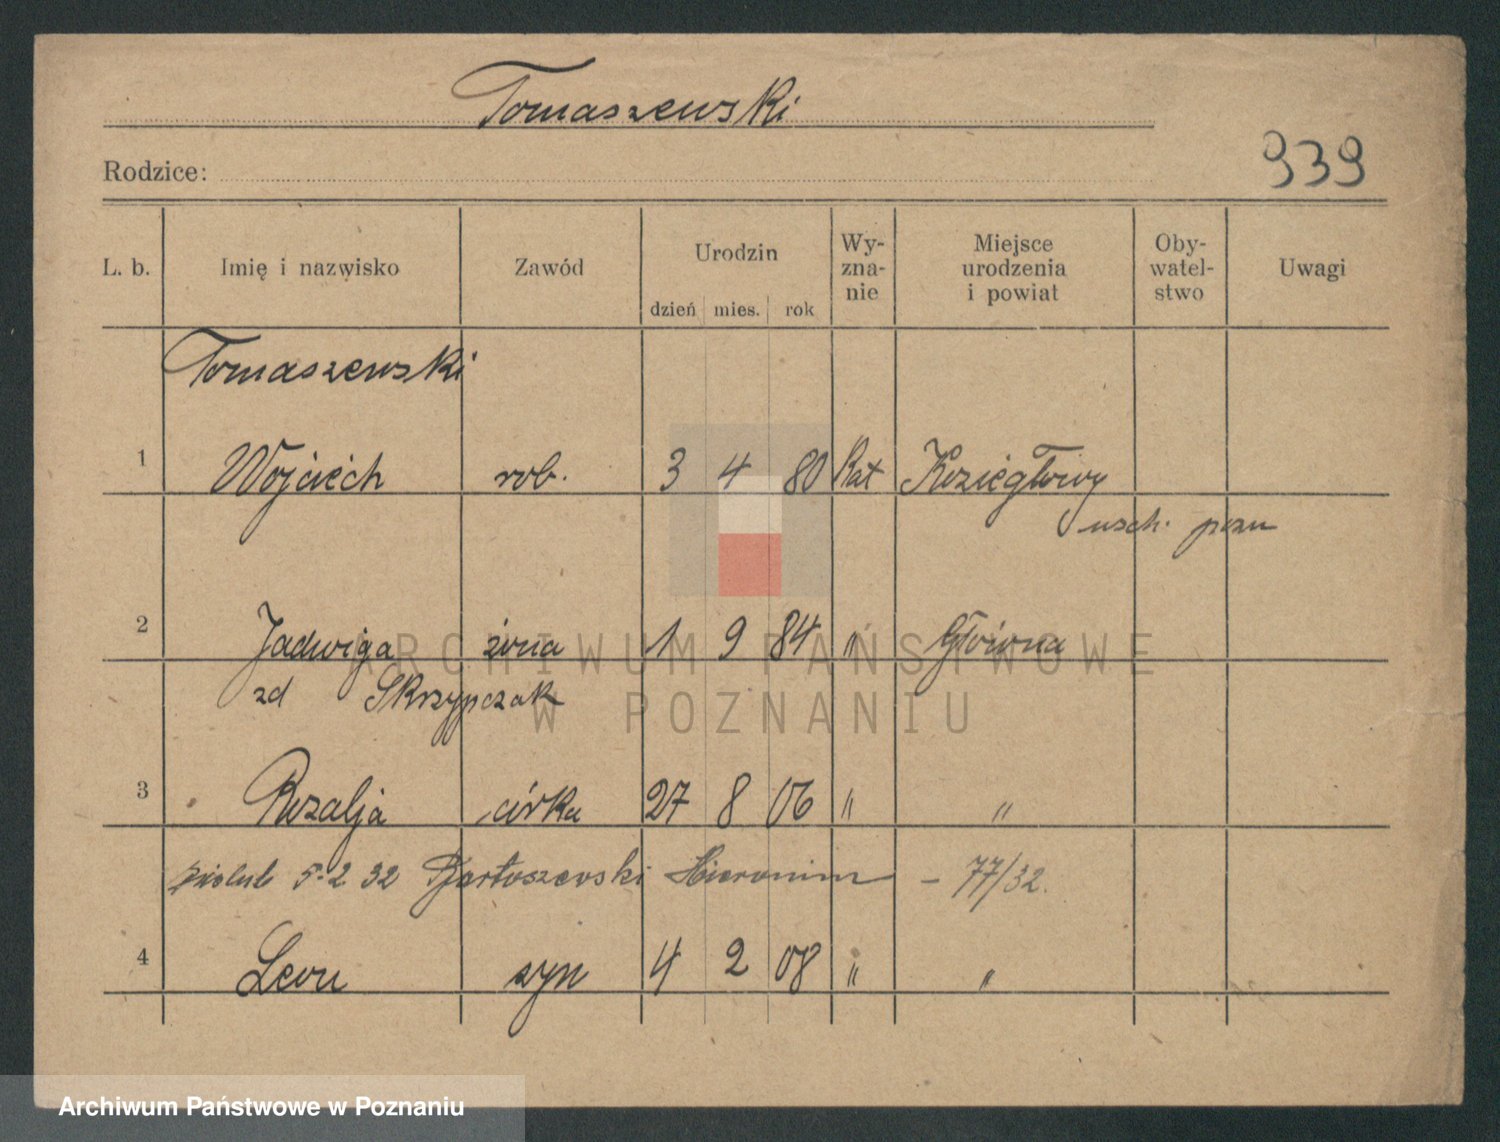 Tomaszewski
939
Rodzice:
L. b. Imię i nazwisko Zawód Urodzin dzień mies. rok Wy-zna-nie Miejsce urodzenia i powiat Oby-watel-stwo Uwagi
Tomaszewski
1 Wojciech rob. 3 4 80 Kat Koziegłowy
wsch. pozn
2 Jadwiga żona 1 9 84 " Główna
zd Skrzypczak
3 Rozalja córka 27 8 06 " "
5.2 32 Bartoszewski Hieronim – 77/32.
4 Leon syn 4 2 08 " "
ARCHIWUM PAŃSTWOWE
W POZNANIU
Archiwum Państwowe w Poznaniu